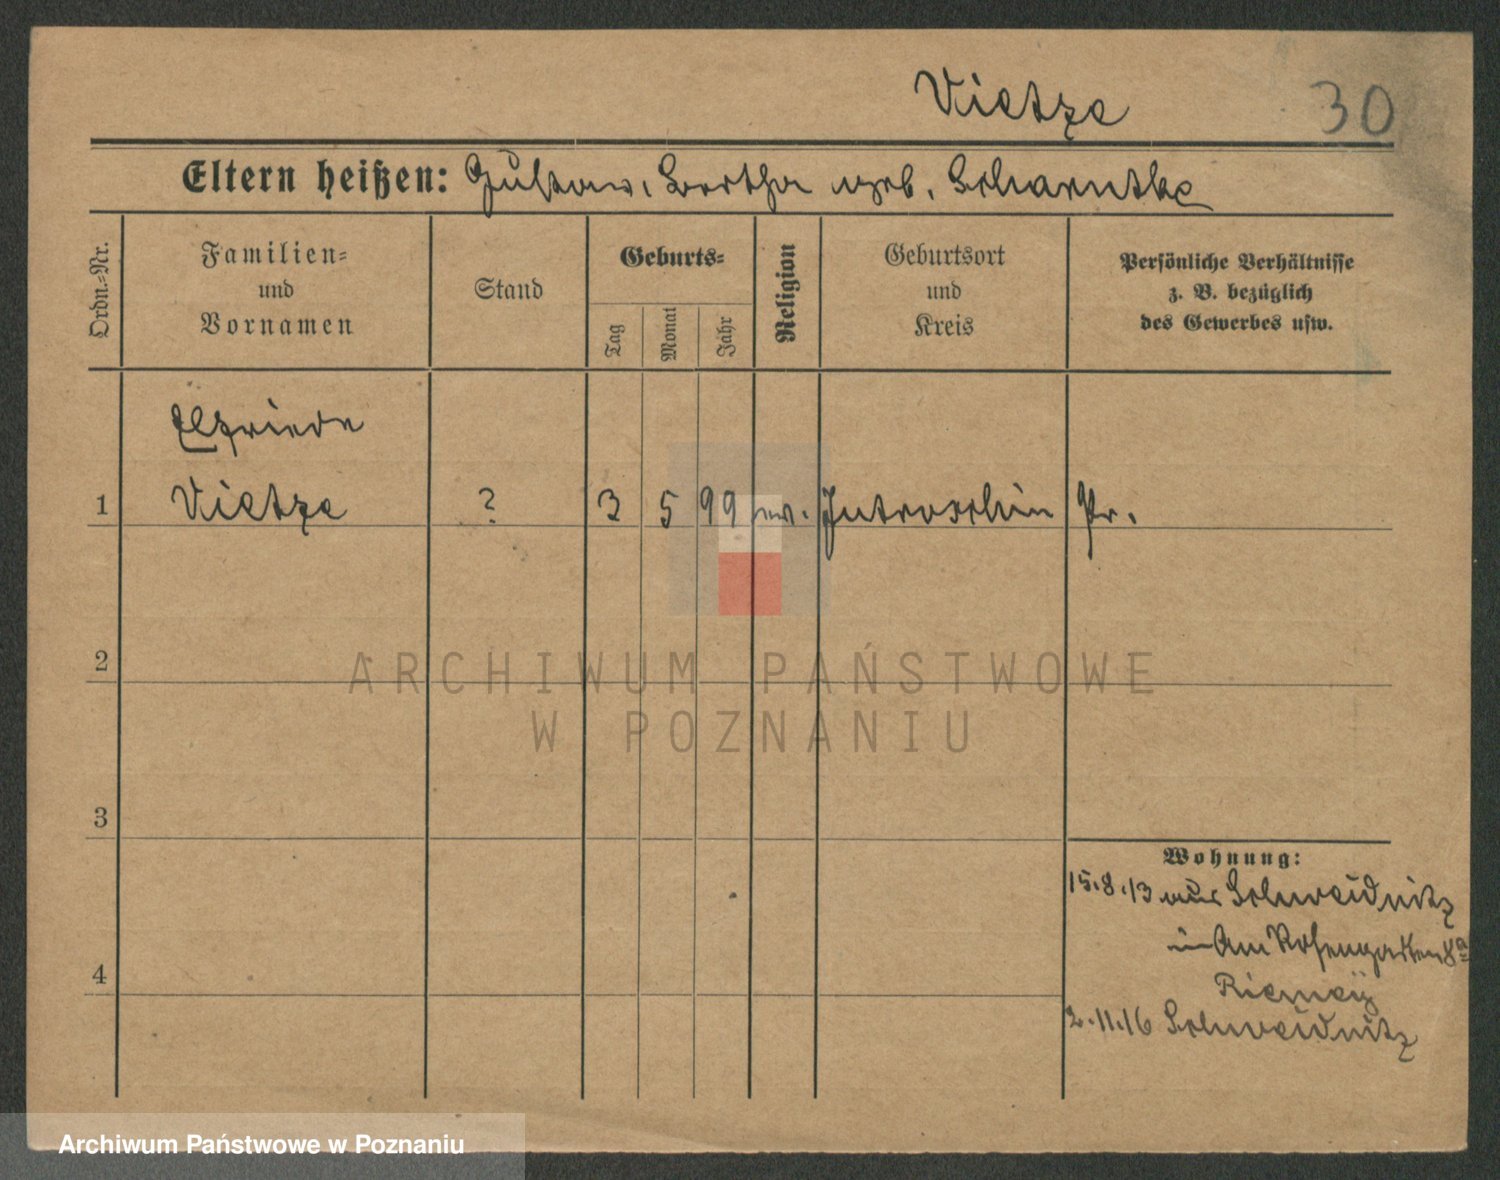 Vietze
30
Eltern heißen: Gustav, Bertha geb. Scharntke
Ordn.=Nr.
Familien= und Vornamen
Stand
Geburts=
Tag
Monat
Jahr
Religion
Geburtsort und Kreis
Persönliche Verhältnisse z. B. bezüglich des Gewerbes usw.
Elfriede
1 Vietze ? 3 5 99 ev. Jutroschin Pr.
2
3
4
Wohnung:
15.8.13 aus Schweidnitz
in Am Rosengarten 8a
2.11.16 Schweidnitz
ARCHIWUM PAŃSTWOWE
W POZNANIU
Archiwum Państwowe w Poznaniu